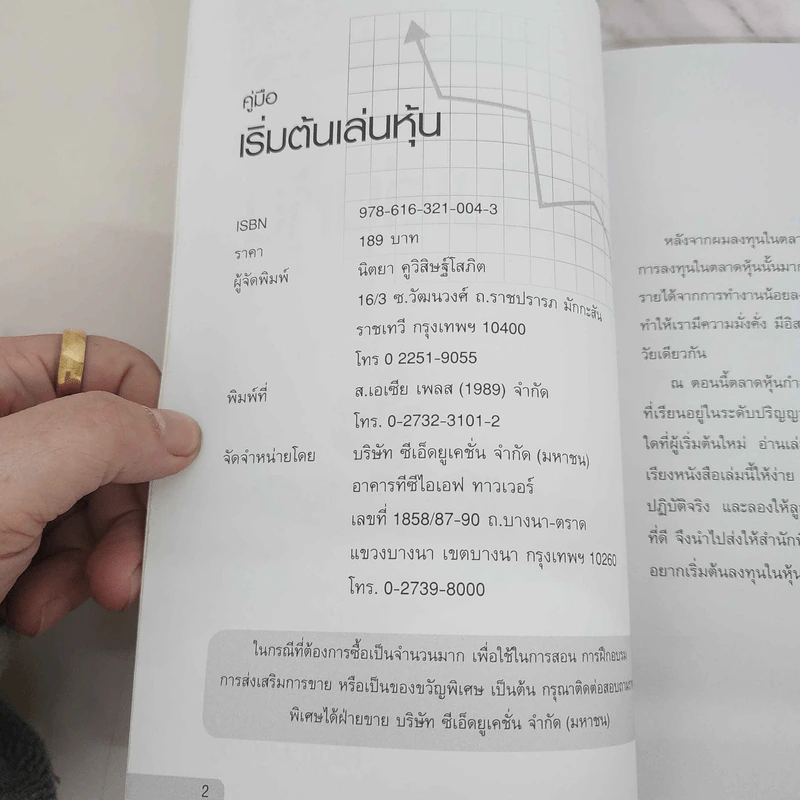 คู่มือ
เริ่มต้นเล่นหุ้น
ISBN 978-616-321-004-3
ราคา 189 บาท
ผู้จัดพิมพ์ นิตยา คูวิสิษฐ์โสภิต
16/3 ซ.วัฒนวงศ์ ถ.ราชปรารภ มักกะสัน
ราชเทวี กรุงเทพฯ 10400
โทร 0 2251-9055
พิมพ์ที่ ส.เอเซีย เพลส (1989) จำกัด
โทร. 0-2732-3101-2
จัดจำหน่ายโดย บริษัท ซีเอ็ดยูเคชั่น จำกัด (มหาชน)
อาคารทีซีไอเอฟ ทาวเวอร์
เลขที่ 1858/87-90 ถ.บางนา-ตราด
แขวงบางนา เขตบางนา กรุงเทพฯ 10260
โทร. 0-2739-8000
ในกรณีที่ต้องการซื้อเป็นจำนวนมาก เพื่อใช้ในการสอน การฝึกอบรม
การส่งเสริมการขาย หรือเป็นของขวัญพิเศษ เป็นต้น กรุณาติดต่อสอบถาม
พิเศษได้ฝ่ายขาย บริษัท ซีเอ็ดยูเคชั่น จำกัด (มหาชน)
2
หลังจากผมลงทุนในตลา
การลงทุนในตลาดหุ้นนั้นมา
รายได้จากการทำงานน้อยล
ทำให้เรามีความมั่งคั่ง มีอิส
วัยเดียวกัน
ณ ตอนนี้ตลาดหุ้นกำ
ที่เรียนอยู่ในระดับปริญญ
ใดที่ผู้เริ่มต้นใหม่ อ่านเล่
เรียงหนังสือเล่มนี้ให้ง่าย
ปฏิบัติจริง และลองให้ลู
ที่ดี จึงนำไปส่งให้สำนักพิ
อยากเริ่มต้นลงทุนในหุ้น